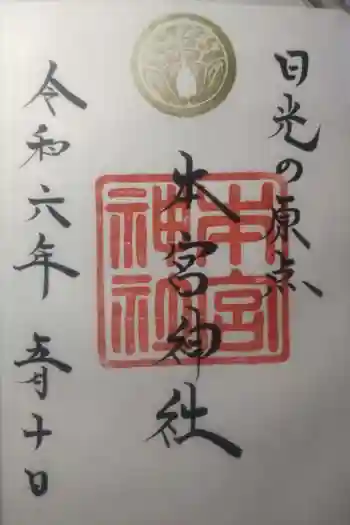 日光の原点
本宮神社
本宮神社
令和六年 五月十日